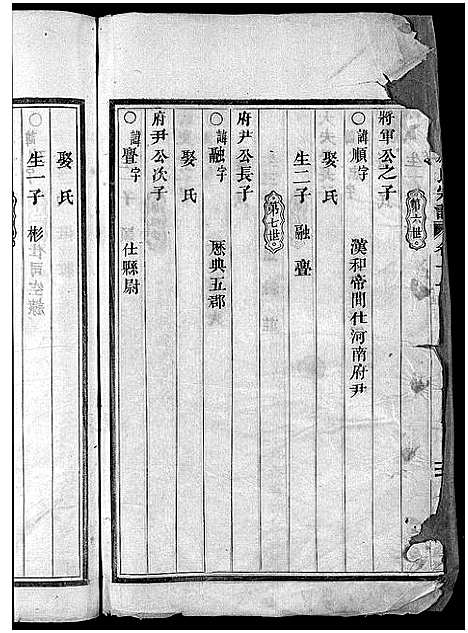 第六世
將軍公之子
○諱順字 漢和帝間仕河南府尹
娶氏
生二子 融 疊
第七世
府尹公長子
○諱融字 歷典五郡
娶氏
府尹公次子
○諱疊字 仕縣尉
娶氏
生一子 彬
○